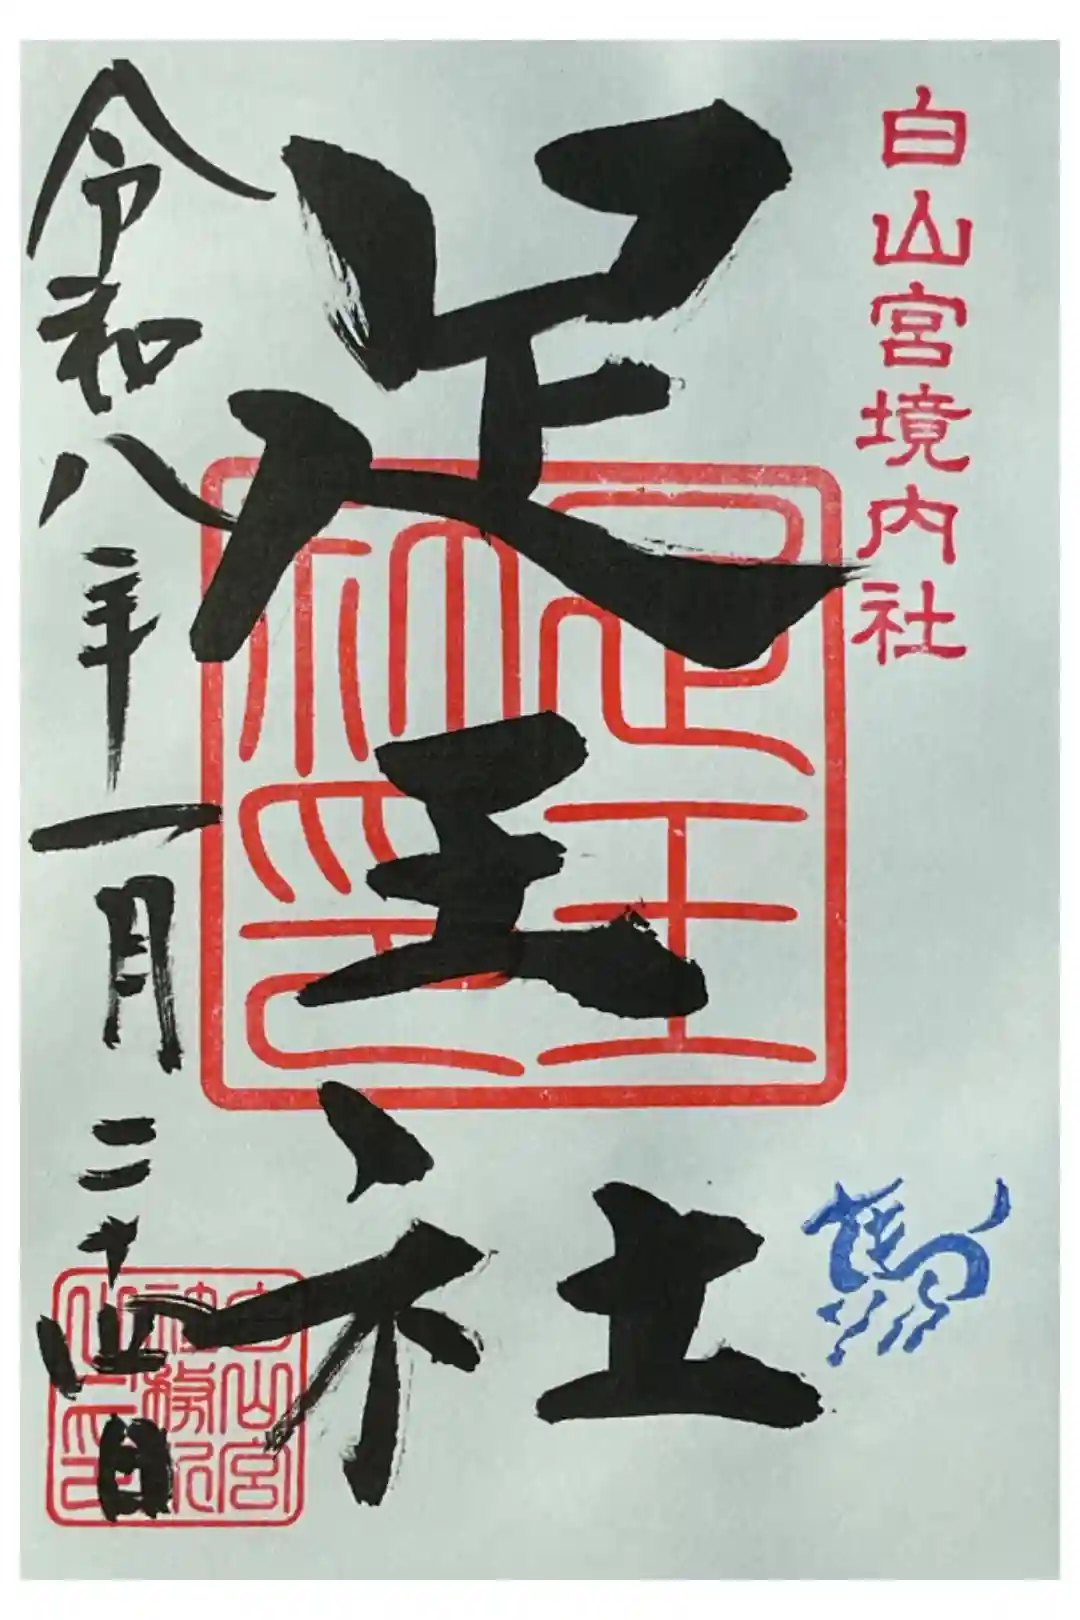 白山宮境内社
足王社
令和八年一月二十四日
足王
白山宮
社務所
之印
馬